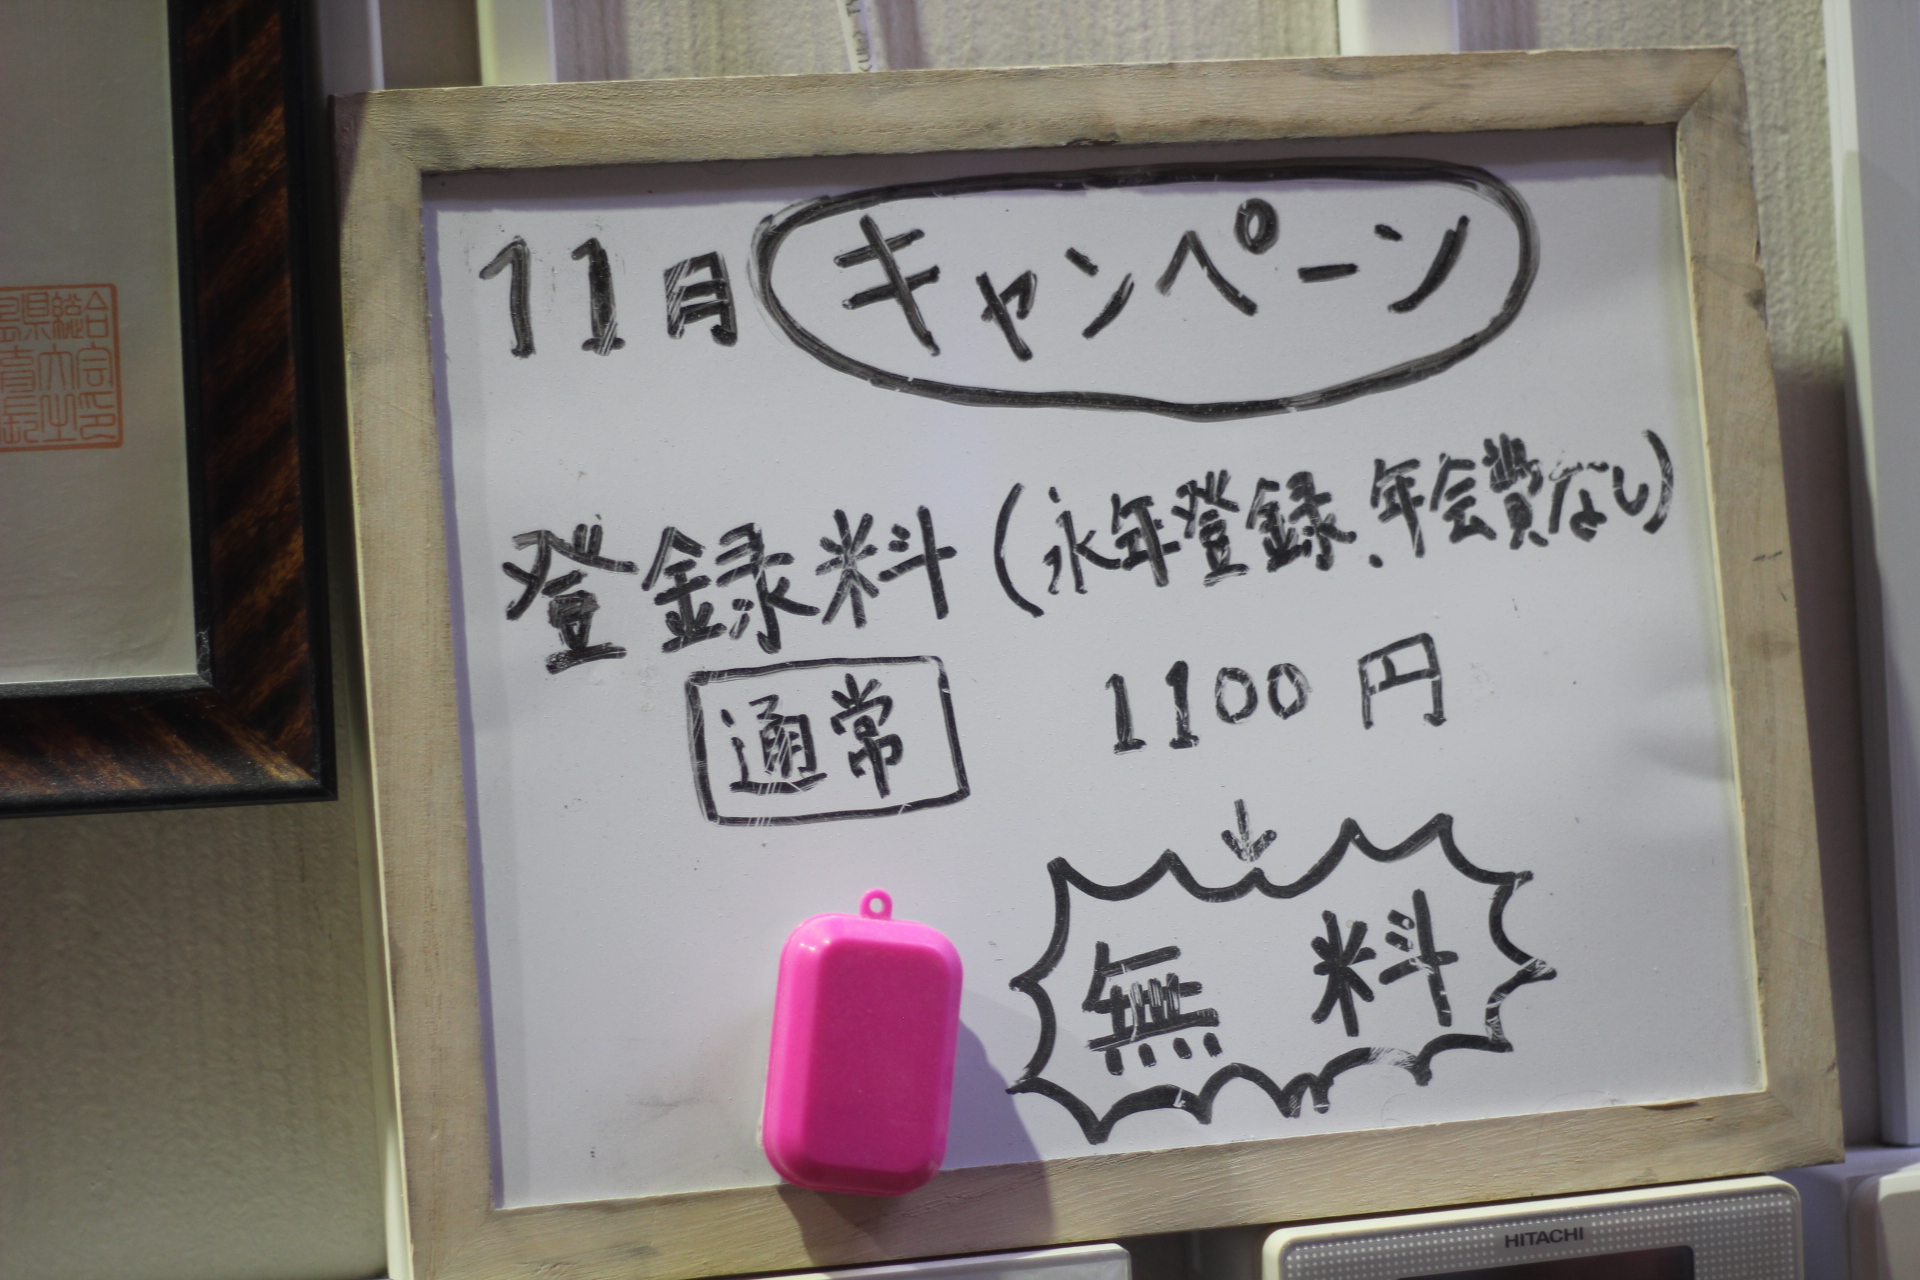 11月 キャンペーン
登録料 (永年登録、年会費なし)
通常 1100円
↓
無料
HITACHI